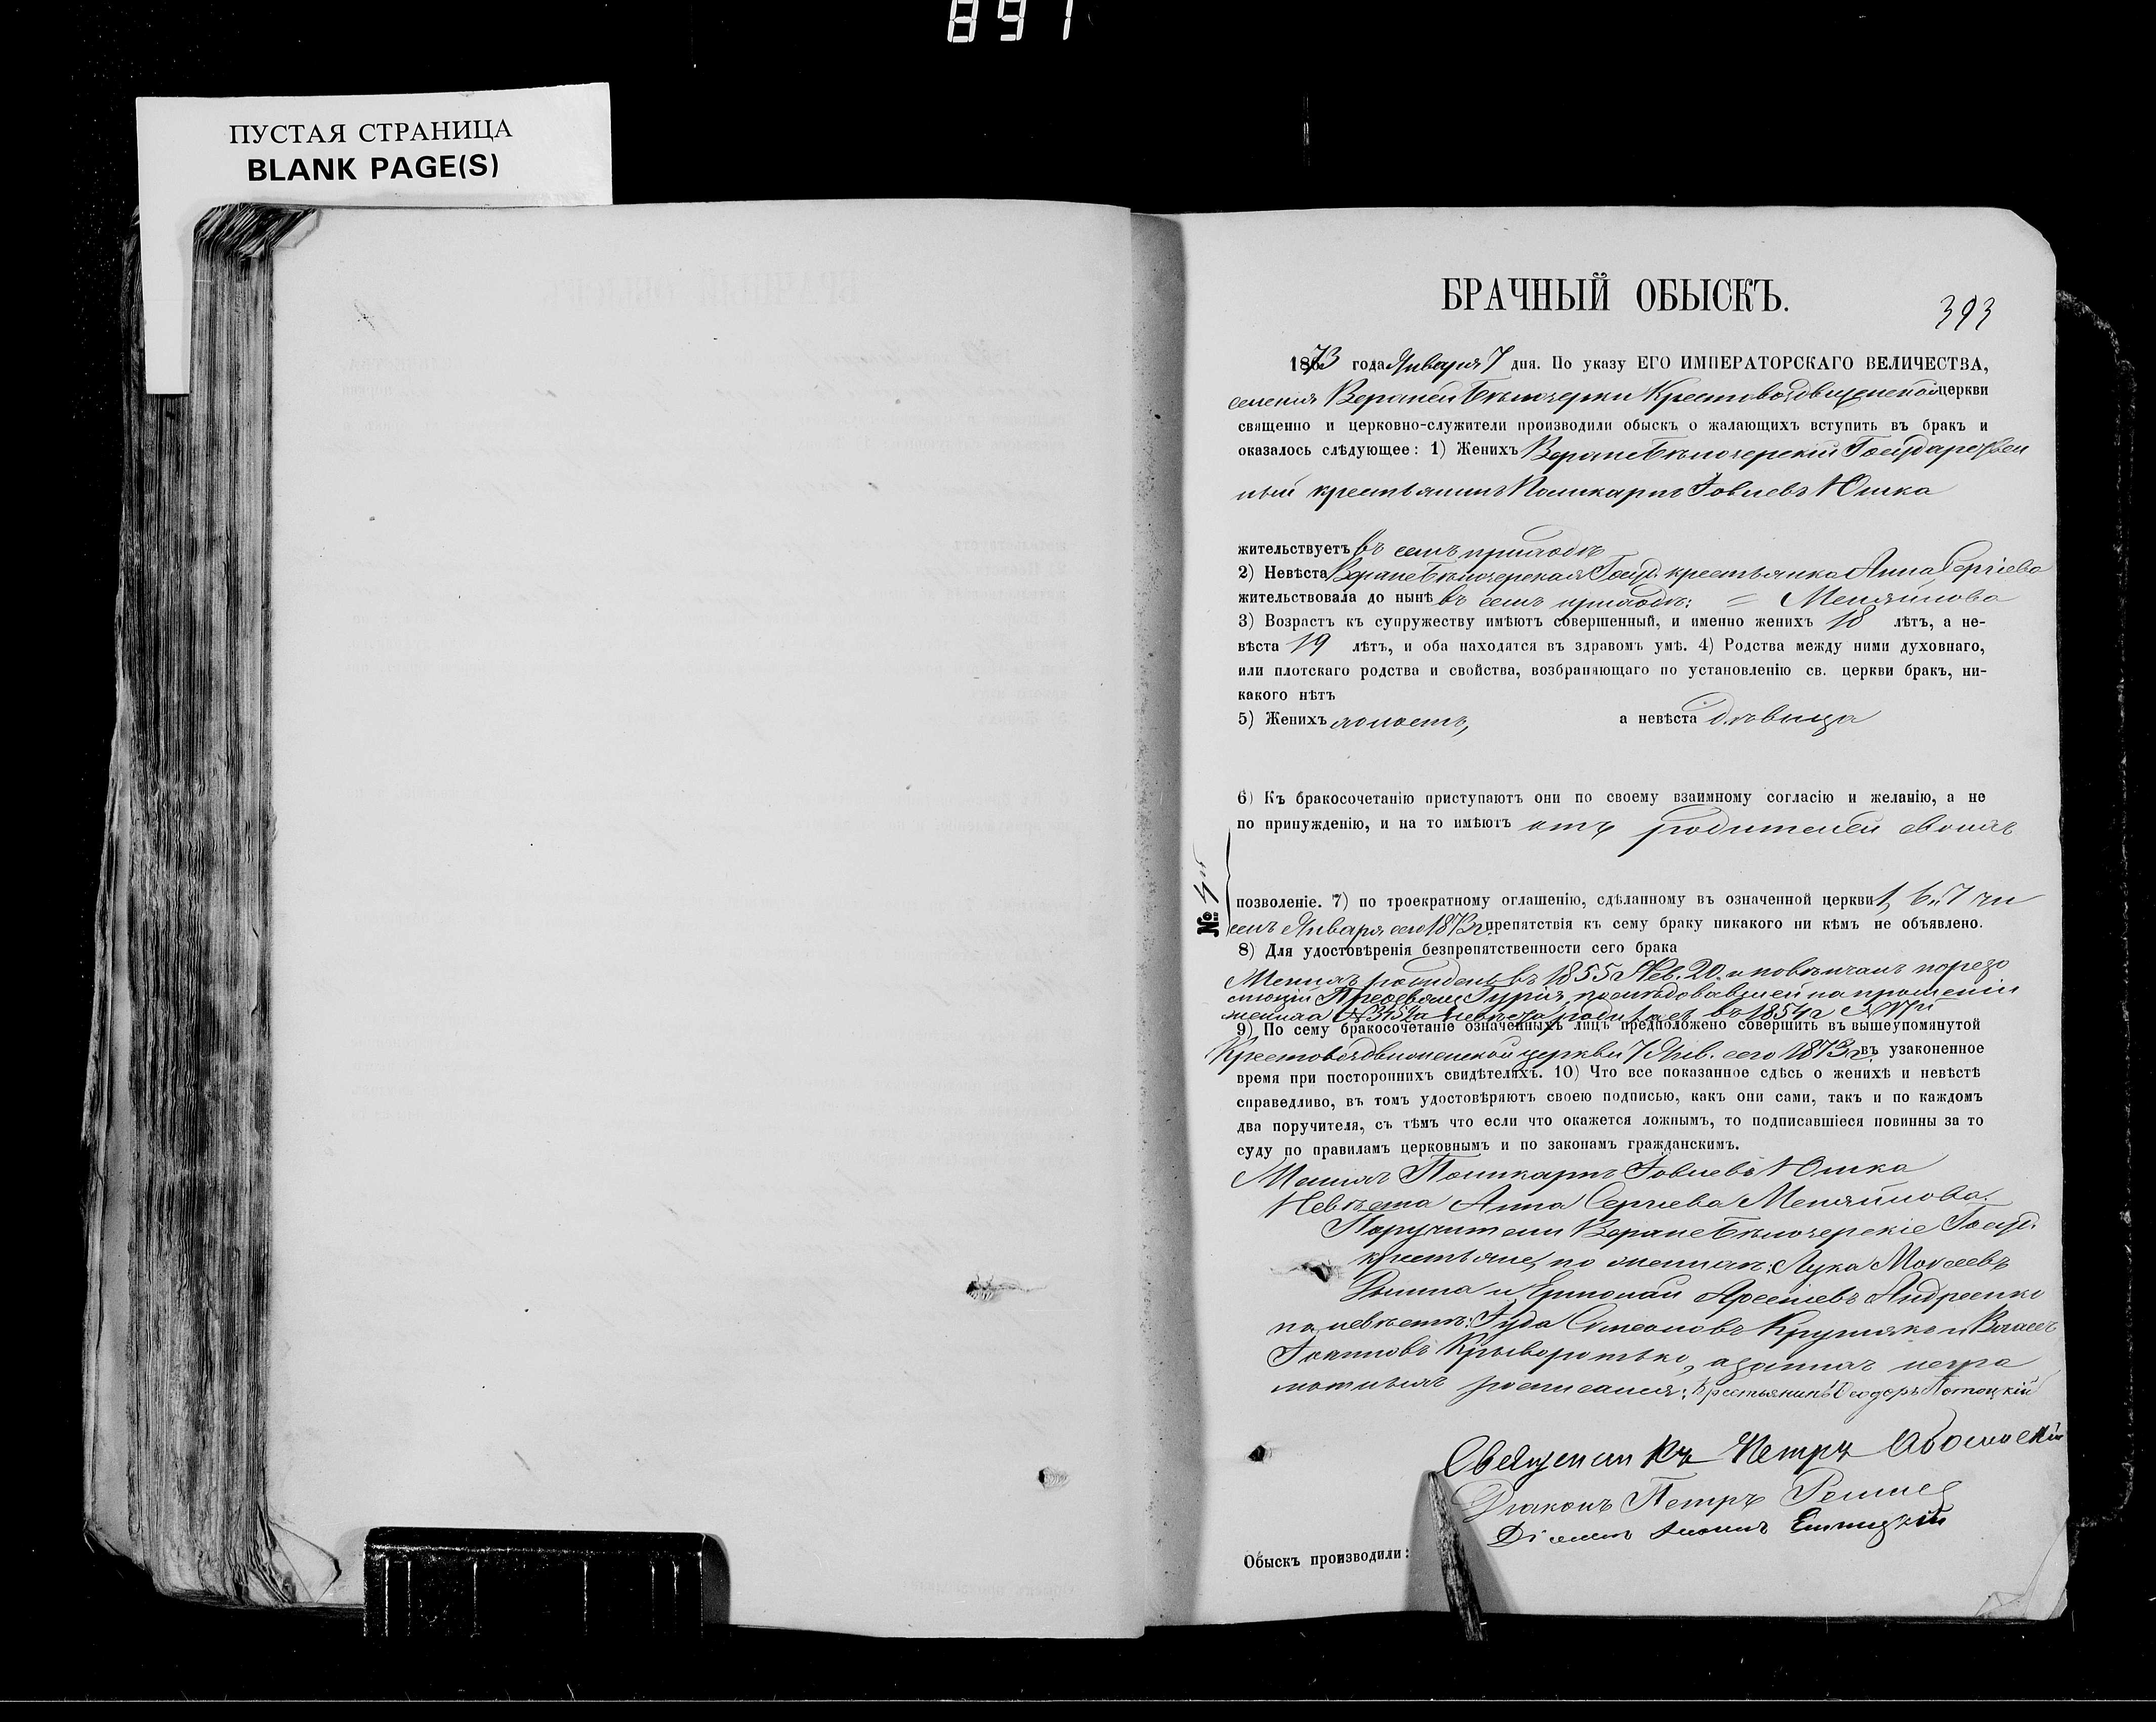 897
ПУСТАЯ СТРАНИЦА
BLANK PAGE(S)
БРАЧНЫЙ ОБЫСКЪ.
393
1873 года Января 7 дня. По указу ЕГО ИМПЕРАТОРСКАГО ВЕЛИЧЕСТВА,
селенія Верхней Бѣлозерки Крестовоздвиженской церкви
священно и церковно-служители производили обыскъ о жалающихъ вступить въ бракъ и
оказалось слѣдующее: 1) Женихъ Верхнебѣлозерскій Государствен
ный крестьянинъ Поликарпъ Іовлевъ Юшка
жительствуетъ въ семъ приходѣ
2) Невѣста Верхнебѣлозерская Госуд. крестьянка Анна Сергіева
жительствовала до нынѣ въ семъ приходѣ: = Меняйлова
3) Возрастъ къ супружеству имѣютъ совершенный, и именно женихъ 18 лѣтъ, а не-
вѣста 19 лѣтъ, и оба находятся въ здравомъ умѣ. 4) Родства между ними духовнаго,
или плотскаго родства и свойства, возбраняющаго по установленію св. церкви бракъ, ни-
какого нѣтъ
5) Женихъ холостъ, а невѣста дѣвица
6) Къ бракосочетанію приступаютъ они по своему взаимному согласію и желанію, а не
по принужденію, и на то имѣютъ отъ родителей своихъ
позволеніе. 7) по троекратному оглашенію, сдѣланному въ означенной церкви 1, 6 и 7 чи
селъ Января сего 1873 г. препятствія къ сему браку никакого ни кѣмъ не объявлено.
№
8) Для удостовѣренія безпрепятственности сего брака
Женихъ родился въ 1855 г. Фев. 20. и повѣнчанъ по резо
люціи Преосвящ. Гурія, послѣдовавшей на прошеніи
жениха невѣста родилась въ 1854 г.
9) По сему бракосочетаніе означенныхъ лицъ предположено совершить въ вышеупомянутой
Крестовоздвиженской церкви 7 Янв. сего 1873 г. въ узаконенное
время при постороннихъ свидѣтеляхъ. 10) Что все показанное сдѣсь о женихѣ и невѣстѣ
справедливо, въ томъ удостовѣряютъ своею подписью, какъ они сами, такъ и по каждомъ
два поручителя, съ тѣмъ что если что окажется ложнымъ, то подписавшіеся повинны за то
суду по правиламъ церковнымъ и по законамъ гражданскимъ.
Женихъ Поликарпъ Іовлевъ Юшка
Невѣста Анна Сергіева Меняйлова.
Поручители Верхнебѣлозерскіе Госуд.
крестьяне, по женихѣ: Лука Моисеевъ
и Арсеніевъ Андреенко
по невѣстѣ: Іуда Симеоновъ и Власъ
Іоанновъ Криворотько, а за нихъ негра
мотныхъ росписался: Крестьянинъ Ѳеодоръ Потоцкій
Священникъ Петръ
Діаконъ Петръ
Обыскъ производили: